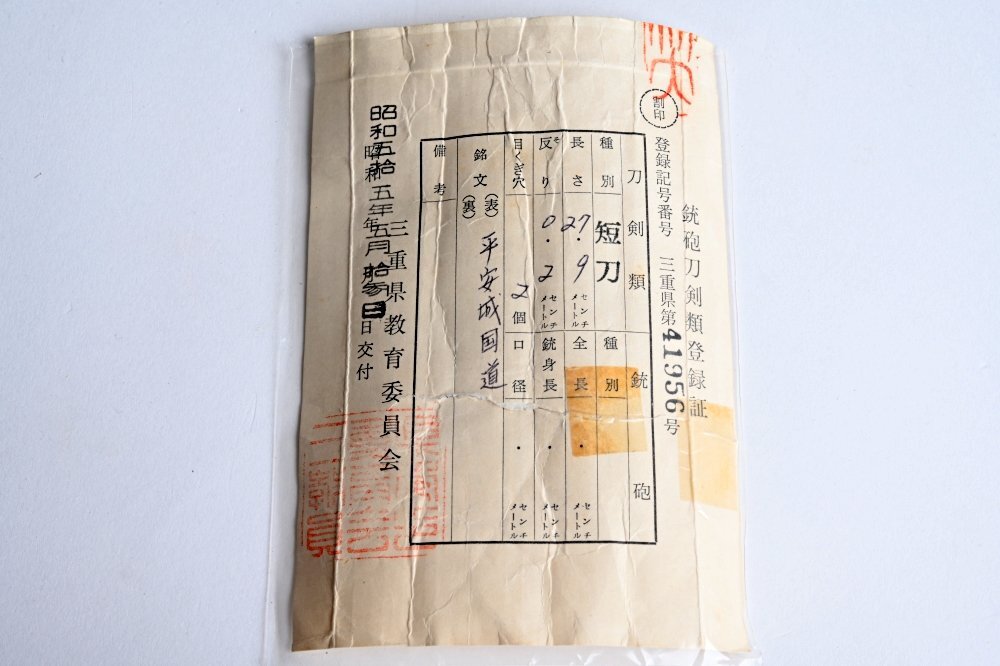 銃砲刀剣類登録証
割印
登録記号番号 三重県第41956号
刀剣類 銃砲
種別 短刀 種別
長さ 27.9 センチメートル 全長 . センチメートル
反り そ 0.2 センチメートル 銃身長 . センチメートル
目くぎ穴 2個 口径 . センチメートル
銘文 (表) 平安城国道
(裏)
備考
三重県教育委員会
昭和五拾五年五月拾参日
昭和 年 日交付